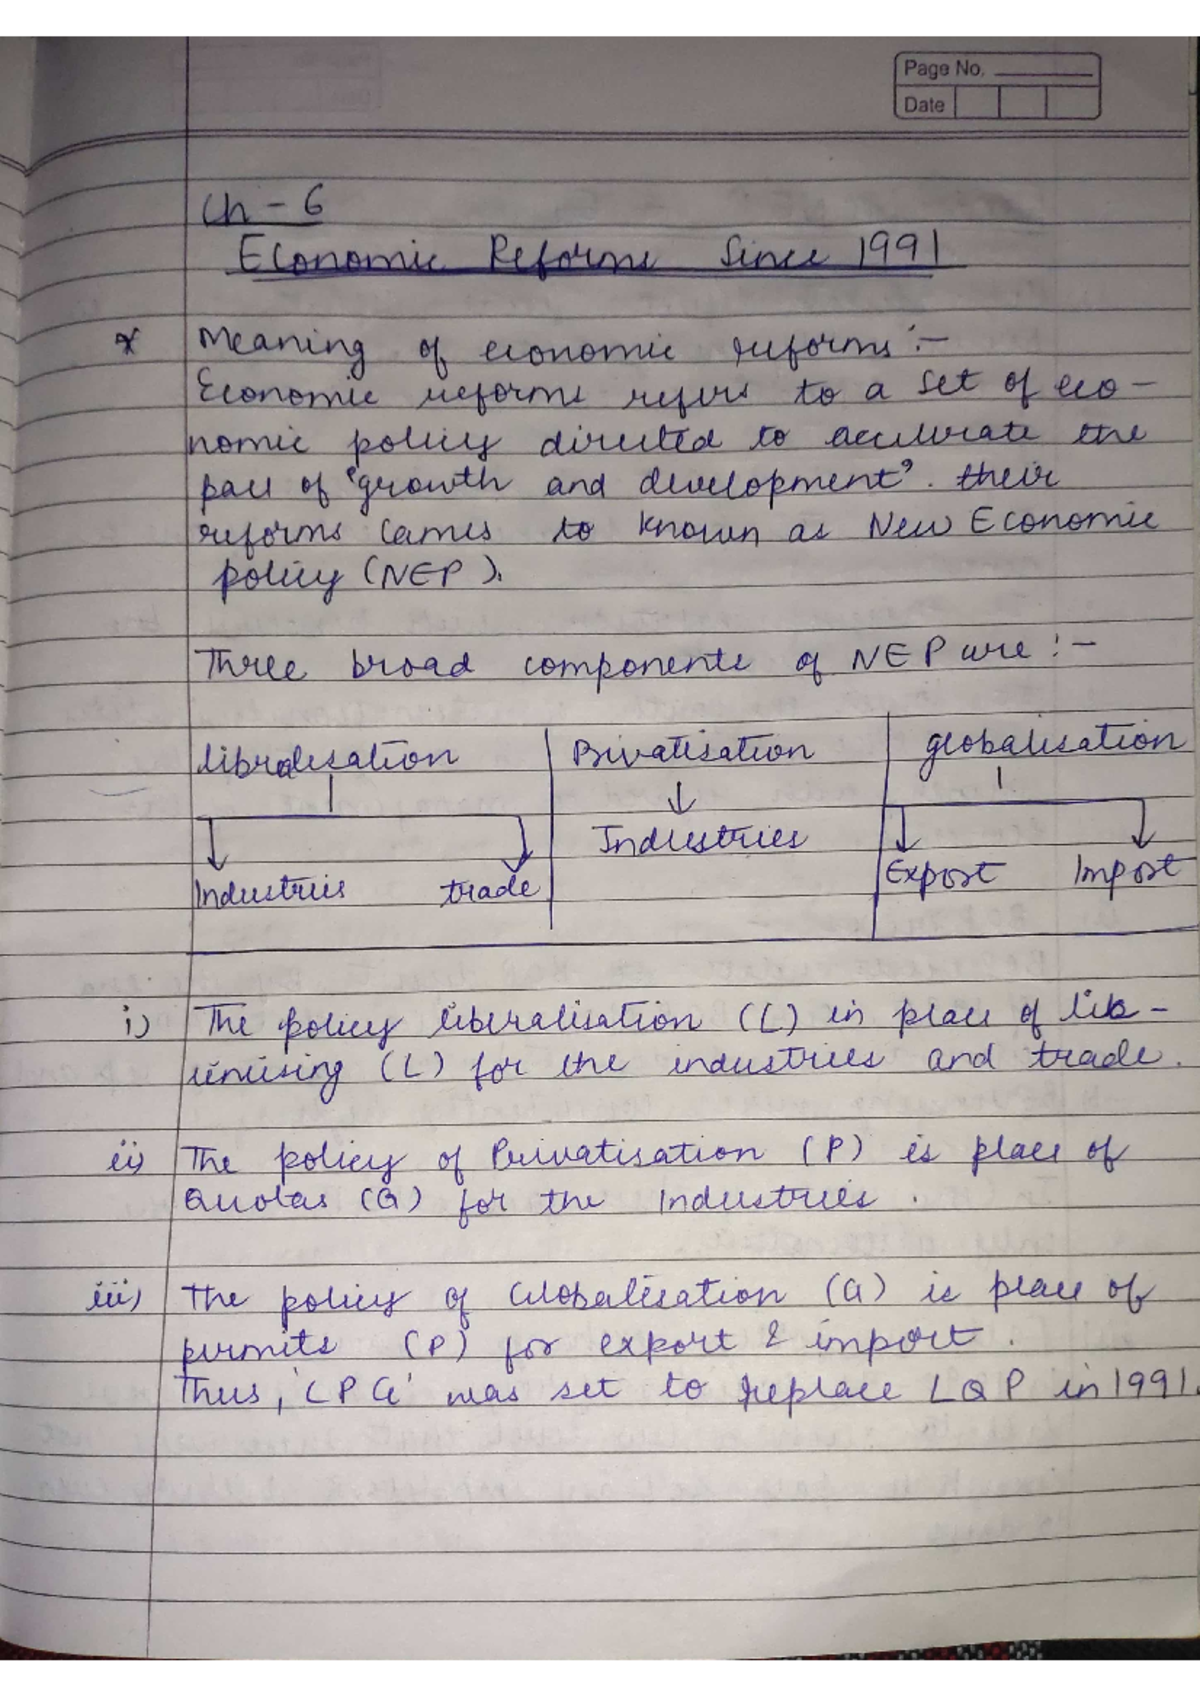 Page No.
Date
Ch - 6
Economic Reforms Since 1991
* Meaning of economic reforms :-
Economic reforms refers to a set of eco-
nomic policy directed to accelerate the
pace of "growth and development". their
reforms cames to known as New Economic
policy (NEP).
Three broad components of NEP are :-
libralisation Privatisation globalisation
Industries
Industries trade Export Import
i) The policy liberalisation (L) in place of
(L) for the industries and trade.
ii) The policy of Privatisation (P) is place of
Quotas (Q) for the Industries.
iii) The policy of Globalisation (G) is place of
permits (P) for export & import.
Thus, 'LPG' was set to replace LQP in 1991.